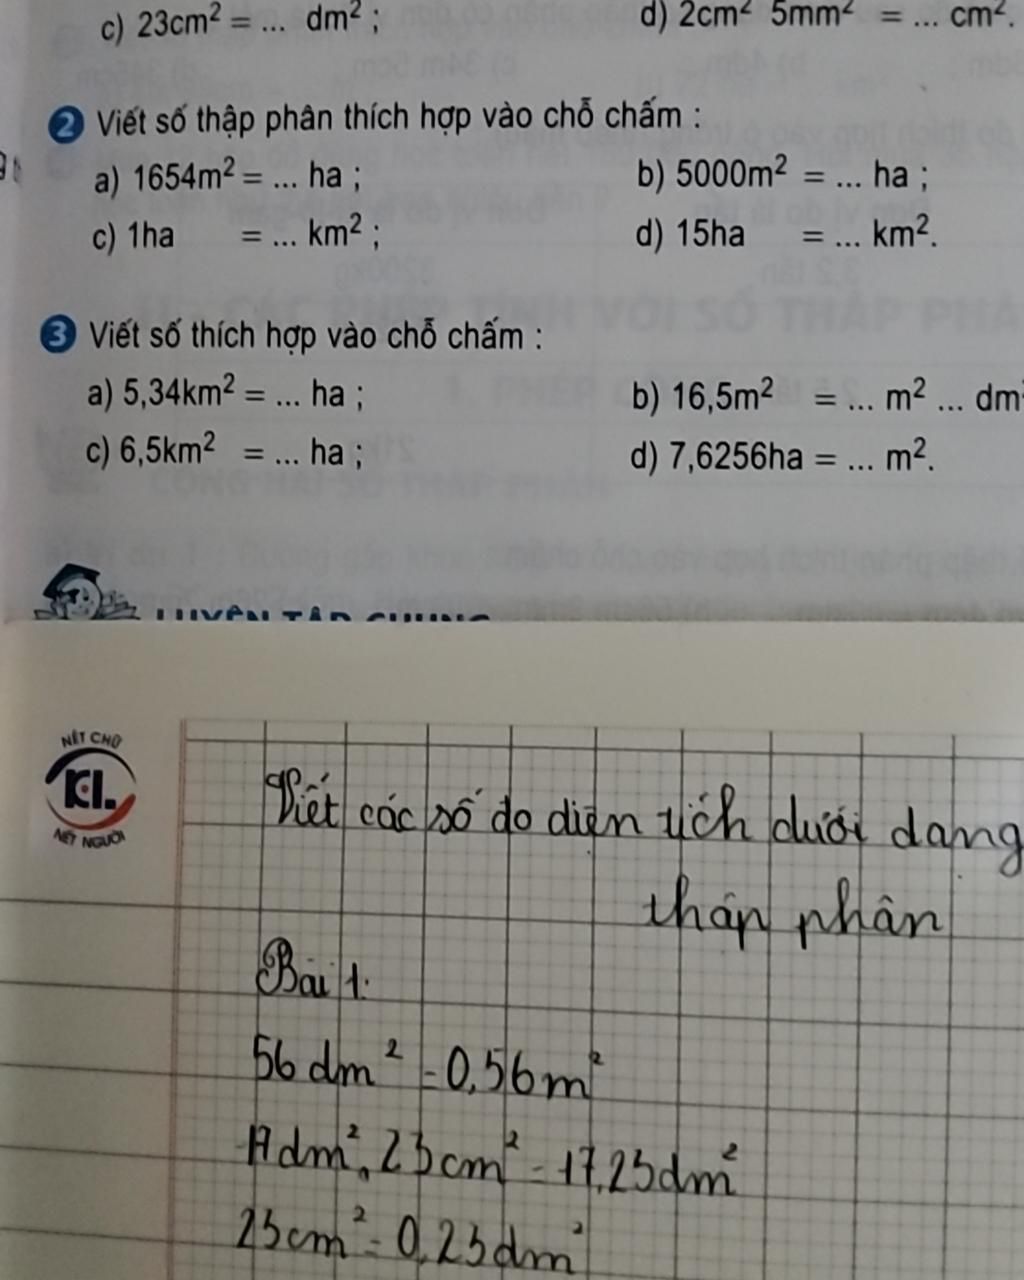 c) 23cm² = ... dm² ; d) 2cm² 5mm² = ... cm².
2 Viết số thập phân thích hợp vào chỗ chấm :
a) 1654m² = ... ha ; b) 5000m² = ... ha ;
c) 1ha = ... km² ; d) 15ha = ... km².
3 Viết số thích hợp vào chỗ chấm :
a) 5,34km² = ... ha ; b) 16,5m² = ... m² ... dm
c) 6,5km² = ... ha ; d) 7,6256ha = ... m².
LUYỆN TẬP CHUNG
NÉT CHỮ
KL
NẾT NGƯỜI
Viết các số đo diện tích dưới dạng
thập phân
Bài 1:
56 dm² = 0,56 m²
17 dm², 23 cm² = 17,23 dm²
23 cm² = 0,23 dm²